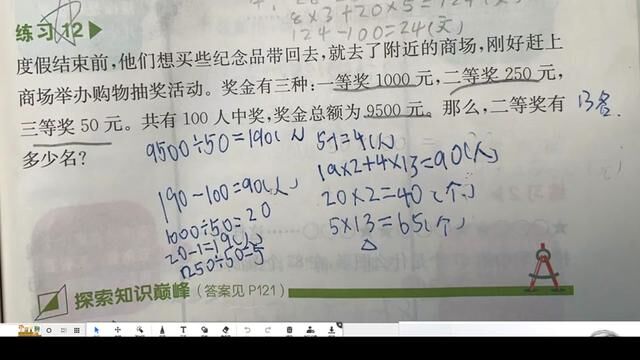 8×3+20×5=124(支)
124-100=24(支)
练习 12
度假结束前,他们想买些纪念品带回去,就去了附近的商场,刚好赶上
商场举办购物抽奖活动。奖金有三种:一等奖 1000 元,二等奖 250 元,
三等奖 50 元。共有 100 人中奖,奖金总额为 9500 元。那么,二等奖有 13名
多少名?
9500÷50=190(人)
5-1=4(人)
190-100=90(人)
19×2+4×13=90(人)
1000÷50=20
20×2=40(个)
20-1=19(人)
5×13=65(个)
250÷50=5
探索知识巅峰(答案见 P121)